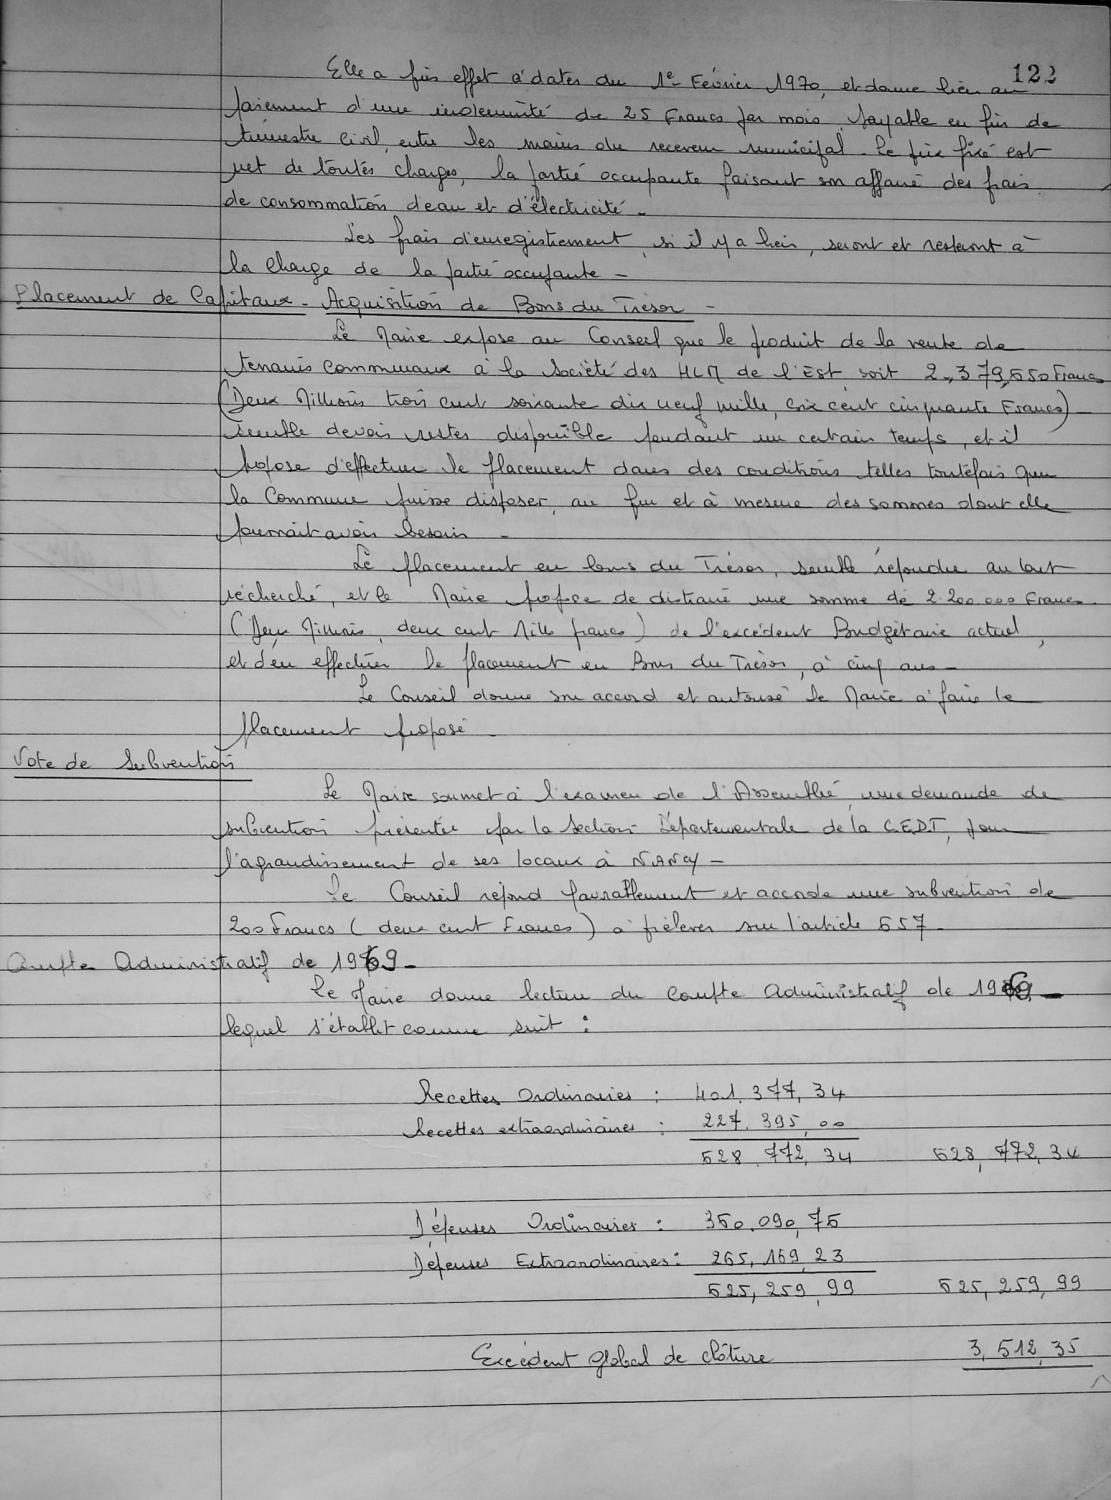 122
Elle a pris effet à dater du 1er Février 1970, et donne lieu au
paiement d'une indemnité de 25 Francs par mois, payable en fin de
trimestre civil, entre les mains du receveur municipal. Le prix fixé est
net de toutes charges, la partie occupante faisant son affaire des frais
de consommation d'eau et d'électricité -
Les frais d'enregistrement, si il y a lieu, seront et resteront à
la charge de la partie occupante -
Placement de Capitaux - Acquisition de Bons du Trésor -
Le Maire expose au Conseil que le produit de la vente de
terrains communaux à la Société des HLM de l'Est, soit 2.379,650 Francs
(Deux Millions trois cent soixante dix neuf mille, six cent cinquante Francs)
semble devoir rester disponible pendant un certain temps, et il
propose d'effectuer le placement dans des conditions telles toutefois que
la Commune puisse disposer, au fur et à mesure des sommes dont elle
pourrait avoir besoin -
Le placement en bons du Trésor, semble répondre au but
recherché, et le Maire propose de distraire une somme de 2 200 000 Francs
(Deux Millions, deux cent Mille francs) de l'excédent Budgétaire actuel,
et d'en effectuer le placement en Bons du Trésor, à cinq ans -
Le Conseil donne son accord et autorise le Maire à faire le
placement proposé -
Vote de Subvention
Le Maire soumet à l'examen de l'Assemblée, une demande de
subvention présentée par la Section Départementale de la C.F.D.T, pour
l'agrandissement de ses locaux à NANCY -
Le Conseil répond favorablement et accorde une subvention de
200 Francs (deux cent Francs) à prélever sur l'article 657 -
Compte Administratif de 1969 -
Le Maire donne lecture du Compte Administratif de 1969 -
lequel s'établit comme suit :
Recettes Ordinaires : 401.377,34
Recettes extraordinaires : 227.395,00
628.772,34 628,772,34
Dépenses Ordinaires : 360.090,76
Dépenses Extraordinaires : 265,169,23
625,259,99 625,259,99
Excédent global de clôture 3,512,35